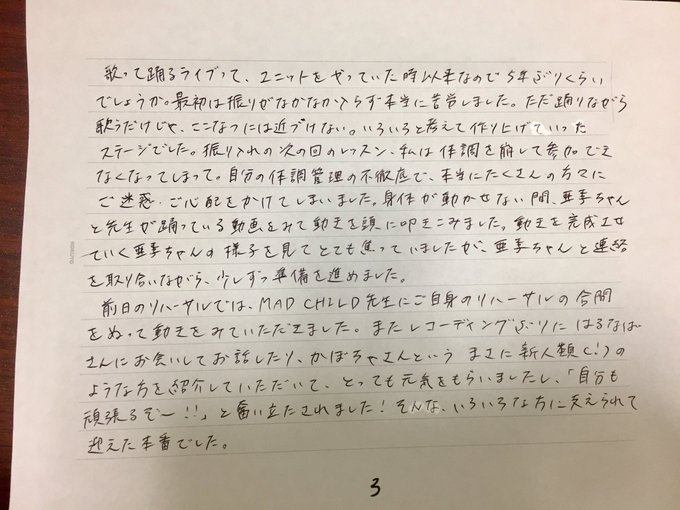 歌って踊るライブって、ユニットをやっていた時以来なので5年ぶりくらい
でしょうか。最初は振りがなかなか入らず本当に苦労しました。ただ踊りながら
歌うだけじゃ、ここなつには近づけない。いろいろと考えて作り上げていった
ステージでした。振り入れの次の回のレッスン、私は体調を崩して参加でき
なくなってしまって。自分の体調管理の不徹底で、本当にたくさんの方々に
ご迷惑・ご心配をかけてしまいました。身体が動かせない間、亜季ちゃん
と先生が踊っている動画をみて動きを頭に叩きこみました。動きを完成させ
ていく亜季ちゃんの様子を見てとても焦っていましたが、亜季ちゃんと連絡
を取り合いながら、少しずつ準備を進めました。
前日のリハーサルでは、MAD CHILD先生にご自身のリハーサルの合間
をぬって動きをみていただきました。またレコーディングぶりにはるなば
さんにお会いしてお話したり、かぼちゃさんというまさに新人類(!)の
ような方を紹介していただいて、とっても元気をもらいましたし、「自分も
頑張るぞー!!」と奮い立たされました!そんな、いろいろな方に支えられて
迎えた本番でした。
3